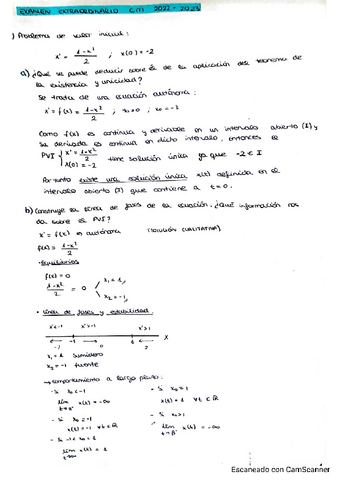 EXAMEN EXTRAORDINARIO GITI 2022-2023
) Problema de valor inicial:
x' = (1-x²)/2 ; x(0) = -2
a) ¿Qué se puede deducir sobre él de la aplicación del teorema de
la existencia y unicidad?
Se trata de una ecuación autónoma:
x' = f(x) = (1-x²)/2 ; t₀=0 ; x₀=-2
Como f(x) es continua y derivable en un intervalo abierto (I) y
su derivada es continua en dicho intervalo, entonces el
PVI { x' = (1-x²)/2 ; x(0) = -2 tiene solución única ya que -2 ∈ I
Por tanto existe una solución única x(t) definida en el
intervalo abierto (I) que contiene a t=0.
b) Construye la línea de fases de la ecuación. ¿Qué información nos
da sobre el PVI?
x' = f(x) es autónoma (solución cualitativa)
f(x) = (1-x²)/2
· Equilibrios
f(x) = 0
(1-x²)/2 = 0 < x₁ = 1, x₂ = -1,
· Línea de fases y estabilidad:
x<-1 x>-1 x>1
-2 -1 0 1 2 x
x₁ = 1 sumidero
x₂ = -1 fuente
→ comportamiento a largo plazo:
- Si x₀ < -1
lím x(t) = -∞
- Si x₀ = 1
x(t) = 1 ∀t ∈ ℝ
- Si x₀ = -1
x(t) = -1 ∀t ∈ ℝ
- Si x₀ > 1
lím x(t) = -∞
- Si -1 < x₀ < 1
lím x(t) = 1
t→∞
Escaneado con CamScanner